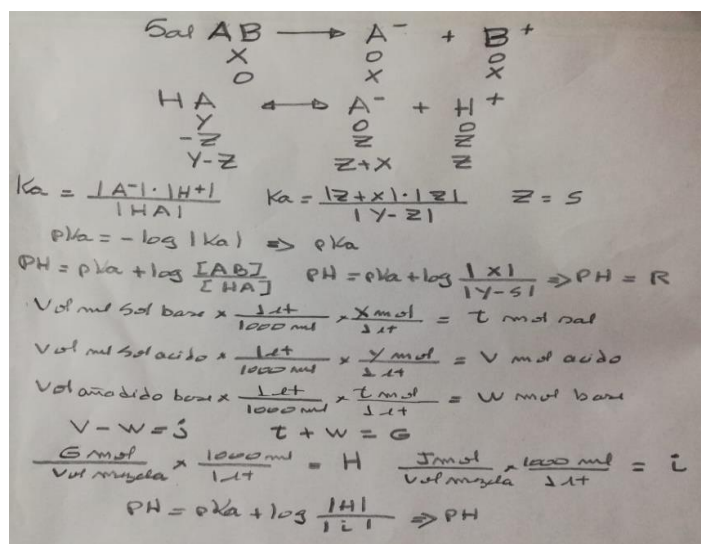 Sal AB → A⁻ + B⁺
X O O
O X X
HA ↔ A⁻ + H⁺
Y O O
-Z Z Z
Y-Z Z+X Z
Ka = |A-| · |H+| / |HA| Ka = |Z+X| · |Z| / |Y-Z| Z = S
pKa = -log |Ka| ⇒ pKa
PH = pKa + log [AB] / [HA] PH = pKa + log |X| / |Y-S| ⇒ PH = R
Vol ml sol base x 1 Lt / 1000 ml x X mol / 1 Lt = t mol sal
Vol ml sol acido x 1 Lt / 1000 ml x Y mol / 1 Lt = V mol acido
Vol añadido base x 1 Lt / 1000 ml x t mol / 1 Lt = W mol base
V - W = J t + W = G
G mol / Vol mezcla x 1000 ml / 1 Lt = H J mol / Vol mezcla x 1000 ml / 1 Lt = i
PH = pKa + log |H| / |i| ⇒ PH